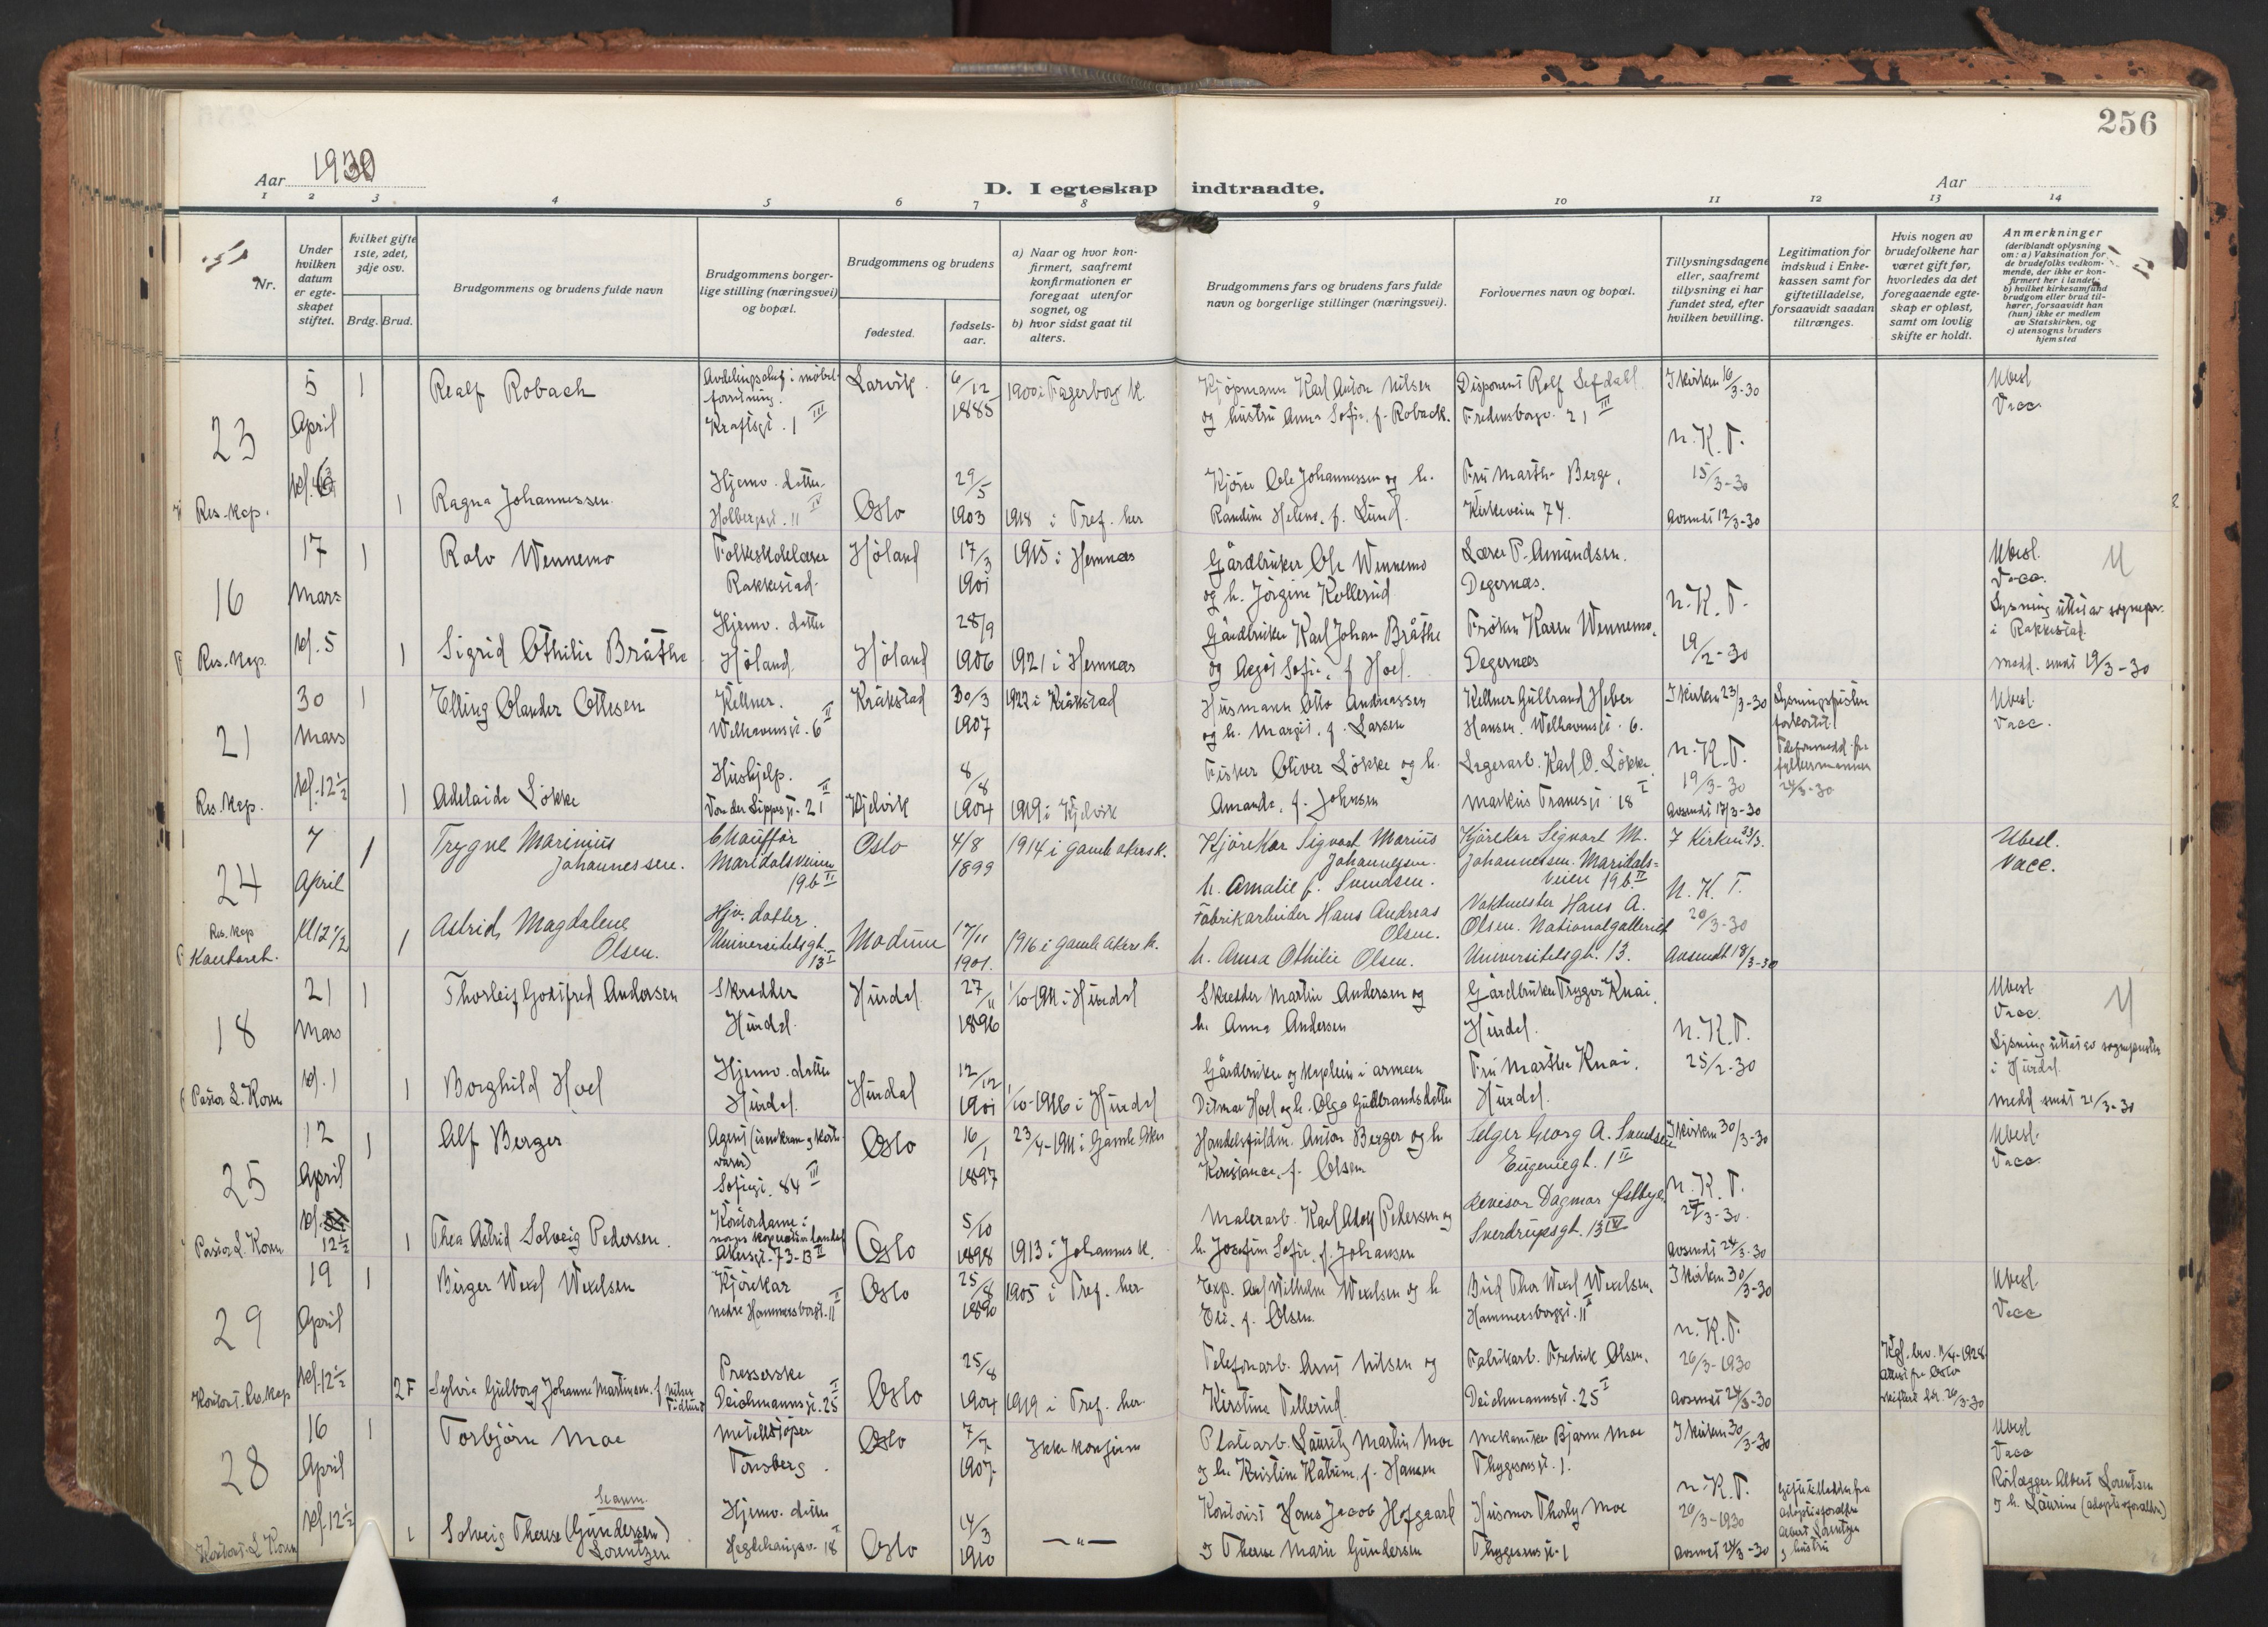 256
Aar 1930
D. I egteskap indtraadte.
Aar
1 2 3 4 5 6 7 8 9 10 11 12 13 14
Nr.
Under hvilken datum er egte-skapet stiftet.
hvilket gifte 1ste, 2det, 3dje osv.
Brdg. Brud.
Brudgommens og brudens fulde navn
Brudgommens borger-lige stilling (næringsvei) og bopæl.
Brudgommens og brudens
fødested.
fødsels-aar.
a) Naar og hvor kon-firmert, saafremt konfirmationen er foregaat utenfor sognet, og
b) hvor sidst gaat til alters.
Brudgommens fars og brudens fars fulde navn og borgerlige stillinger (næringsvei).
Forlovernes navn og bopæl.
Tillysningsdagene eller, saafremt tillysning ei har fundet sted, efter hvilken bevilling.
Legitimation for indskud i Enke-kassen samt for giftetilladelse, forsaavidt saadan tiltrænges.
Hvis nogen av brudefolkene har været gift før, hvorledes da det foregaaende egte-skap er opløst, samt om lovlig skifte er holdt.
Anmerkninger
(deriblandt oplysning om: a) Vaksination for de brudefolks vedkom-mende, der ikke er kon-firmert her i landet, b) hvilket kirkesamfund brudgom eller brud til-hører, forsaavidt han (hun) ikke er medlem av Statskirken, og c) utensogns bruders hjemsted
23
Res. kap.
5
April
1
Realf Robach
Kraftsgt. 1 III
Larvik
6/12 1885
1900 i Fagerborg K.
Kjøpmann Karl Anton Nilsen
og hustru Anna Sofie, f. Roback.
Disponent Rolf Sefdahl
Fredensborgv. 21 III
I kirken 16/3-30
N.K.T.
15/3-30
Avsendt 12/3-30
Ubesl
Vacc
1
Ragna Johannessen
Hjemv. datter
Holbergsgt. 11 IV
Oslo
29/5 1903
1918 i Tref. her
Kjører Ole Johannessen og h.
Randine Helene, f. Lund.
Fru Marthe Berge,
Kirkeveien 74.
16
Res. kap.
17
Mars
kl. 5
1
Rolv Wennemo
Folkeskolelærer
Rakkestad
Høland
17/3 1901
1915 i Hemnes
Gårdbruker Ole Wennemo
og h. Jörgine Kollerud
Lærer P. Amundsen.
Degernes.
N.K.T.
19/2-30
Ubesl.
Vacc.
Lysning uttat av sognepr.
i Rakkestad.
medd. sendt 19/3-30
1
Sigrid Othilie Bråthe
Hjemv. datter
Høland
Höland
28/9 1906
1921 i Hemnes
Gårdbruker Karl Johan Bråthe
og Aagot Sofie, f. Hoel.
Fröken Karen Wennemo,
Degernes
21
Res. kap.
30
Mars
kl. 12½
1
Elling Olander Ottesen
Kellner.
Welhavensgt. 6 II
Kråkstad
30/3 1907
1922 i Kråkstad
Husmann Otto Andreassen
og h. Margit, f. Larsen
Kellner Gulbrand Heber
Hansen. Welhavensgt. 6.
I kirken 23/3-30
N.K.T.
19/3-30
Avsendt 17/3-30
Lysningsfristen
forkortet.
24/3-30
Ubesl.
Vacc.
1
Adelaide Løkke
Hushjelp.
Von der Lippes gt. 21 II
Kjelvik
8/8 1904
1919 i Kjelvik
Fisker Oliver Løkke og h.
Amanda, f. Johnsen
Lagerarb. Karl O. Løkke
Markus Tranesgt. 18 I
24
Res. kap
Kontorch.
7
April
Kl 12½
1
Trygve Marinius
Johannessen.
Chauffør
Maridalsveien
19b II
Oslo
4/8 1899
1914 i Gamle Akers k.
Kjørekar Sigvart Marius
Johannessen.
h. Amalie f. Svendsen.
Kjørekar Sigvart M.
Johannessen. Maridals-
veien 19b II
I Kirken 23/3.
N.K.T.
20/3-30
Avsendt 18/3-30
Ubesl.
Vacc.
1
Astrid Magdalene
Olsen.
Hjv. datter.
Universitetsgt.
13 I
Modum
17/11 1901.
1916 i Gamle Akers k.
Fabrikarbeider Hans Andreas
Olsen.
h. Anna Othilie Olsen.
Vaktmester Hans A.
Olsen. Nationalgalleriet
Universitetsgt. 13.
18
Pastor L. Korn
21
Mars
kl. 1
1
Thorleif Godtfred Andersen
Skredder
Hurdal.
Hurdal
27/11 1896
1/10-1911 i Hurdal
Skredder Martin Andersen og
h. Anna Andersen
Gårdbruker Trygve Knai,
Hurdal.
N.K.T.
25/2-30
Ubesl.
Vacc.
Lysning uttat av sognepresten
i Hurdal.
medd sendt 21/3-30
1
Borghild Hoel
Hjemv. datter
Hurdal.
Hurdal
12/12 1901
1/10-1916 i Hurdal
Gårdbruker og kaptein i armeen
Ditmar Hoel og h. Olga Gulbrandsdatter
Fru Marthe Knai.
Hurdal.
25
Pastor L. Korn
12
April
kl. 12½
1
Alf Berger
Agent (isenkram og kort-
varer)
Sofiegt. 84 III
Oslo
16/1 1897
23/4-1911 i Gamle Aker
Handelsfuldm. Anton Berger og h.
Konstance, f. Olsen
Selger Georg A. Svendsen
Eugeniegt. 1 II
I kirken 30/3-30
N.K.T.
27/3-30.
Avsendt 24/3-30
Ubesl.
Vacc
1
Thea Astrid Solveig Pedersen.
Kontordame i
Akersgt. 73-B II
Oslo
5/10 1898
1913 i Johannes K.
Malerarb. Karl Adolf Pedersen og
h. Josefine Sofie, f. Johansen
Revisor Dagmar Østbye
Sverdrupsgt. 13 IV
29
Kontorst. Res. kap
19
April
kl. 12½
1
Birger Wexel Wexelsen
Kjørekar
Nedre Hammersborgt. 11 I
Oslo
25/8 1890
1905 i Tref. her
Exp. Axel Wilhelm Wexelsen og h.
Eli, f. Olsen.
Bud Thor Wexel Wexelsen,
Hammersborggt. 11 I
I kirken 30/3-30
N.K.T.
26/3-1930
Avsendt 24/3-30
Kgl. bev. 11/4-1928
Attest fra Oslo
skifteret dat. 26/3-30
Ubesl.
Vacc
2 F
Sylvia Gulborg Johanne Martinsen. f. Nilsen
Presserske
Deichmannsgt. 25 I
Oslo
25/8 1904
1919 i Tref. her
Telefonarb. Arnt Nilsen og
Kirstine Tillerud
Fabrikarb. Fredrik Olsen,
Deichmannsgt. 25 I
28
Kontorst. L. Korn
16
April
kl. 12½
1
Torbjörn Moe
Metallstøper
Tønsberg.
Oslo
7/7 1907.
Ikke konfirm
Platearb. Lauritz Martin Moe
og h. Kristine Katrine, f. Hansen
Mekaniker Bjarne Moe
Thygesonsgt. 1.
I kirken 30/3-30
N.K.T.
26/3-1930
Avsendt 24/3-30
Giftetilladelse fra
adoptivforældre
Albert Lorentzen
og hustru
Ubesl
Vacc
Rørlægger Albert Lorentzen
og h. Laurine (adoptivforældre)
1
Solveig Therese (Gundersen)
Lorentzen
Hjemv. datter
Hegdehaugsv. 18 I
Oslo
14/3 1910
— " —
Kontorist Hans Jacob Hofgaard
og Therese Marie Gundersen
Husmor Thorly Moe
Thygesonsgt. 1